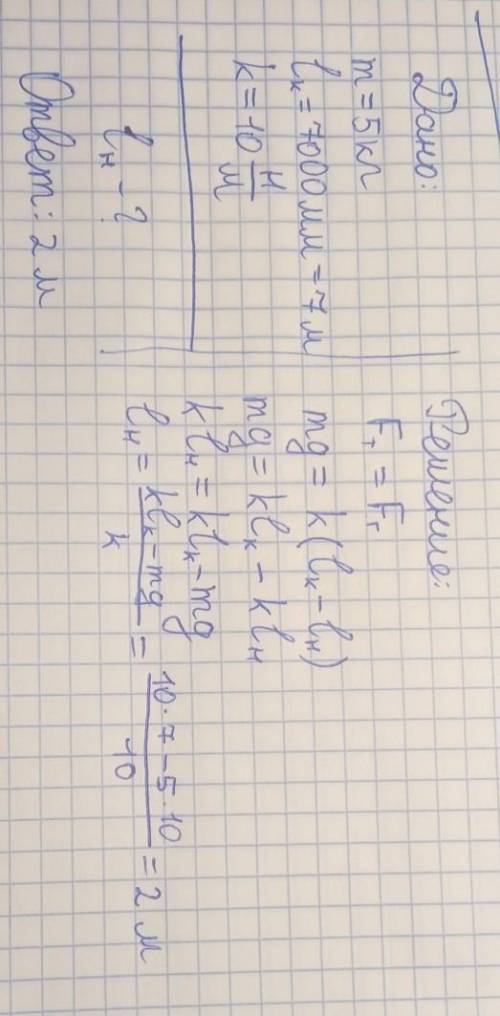 Дано:
m = 5 кг
lк = 7000 мм = 7 м
k = 10 Н/м
lн - ?
Решение:
Fт = Fг
mg = k(lк - lн)
mg = klк - klн
klн = klк - mg
lн = klк - mg / k = 10 · 7 - 5 · 10 / 10 = 2 м
Ответ: 2 м